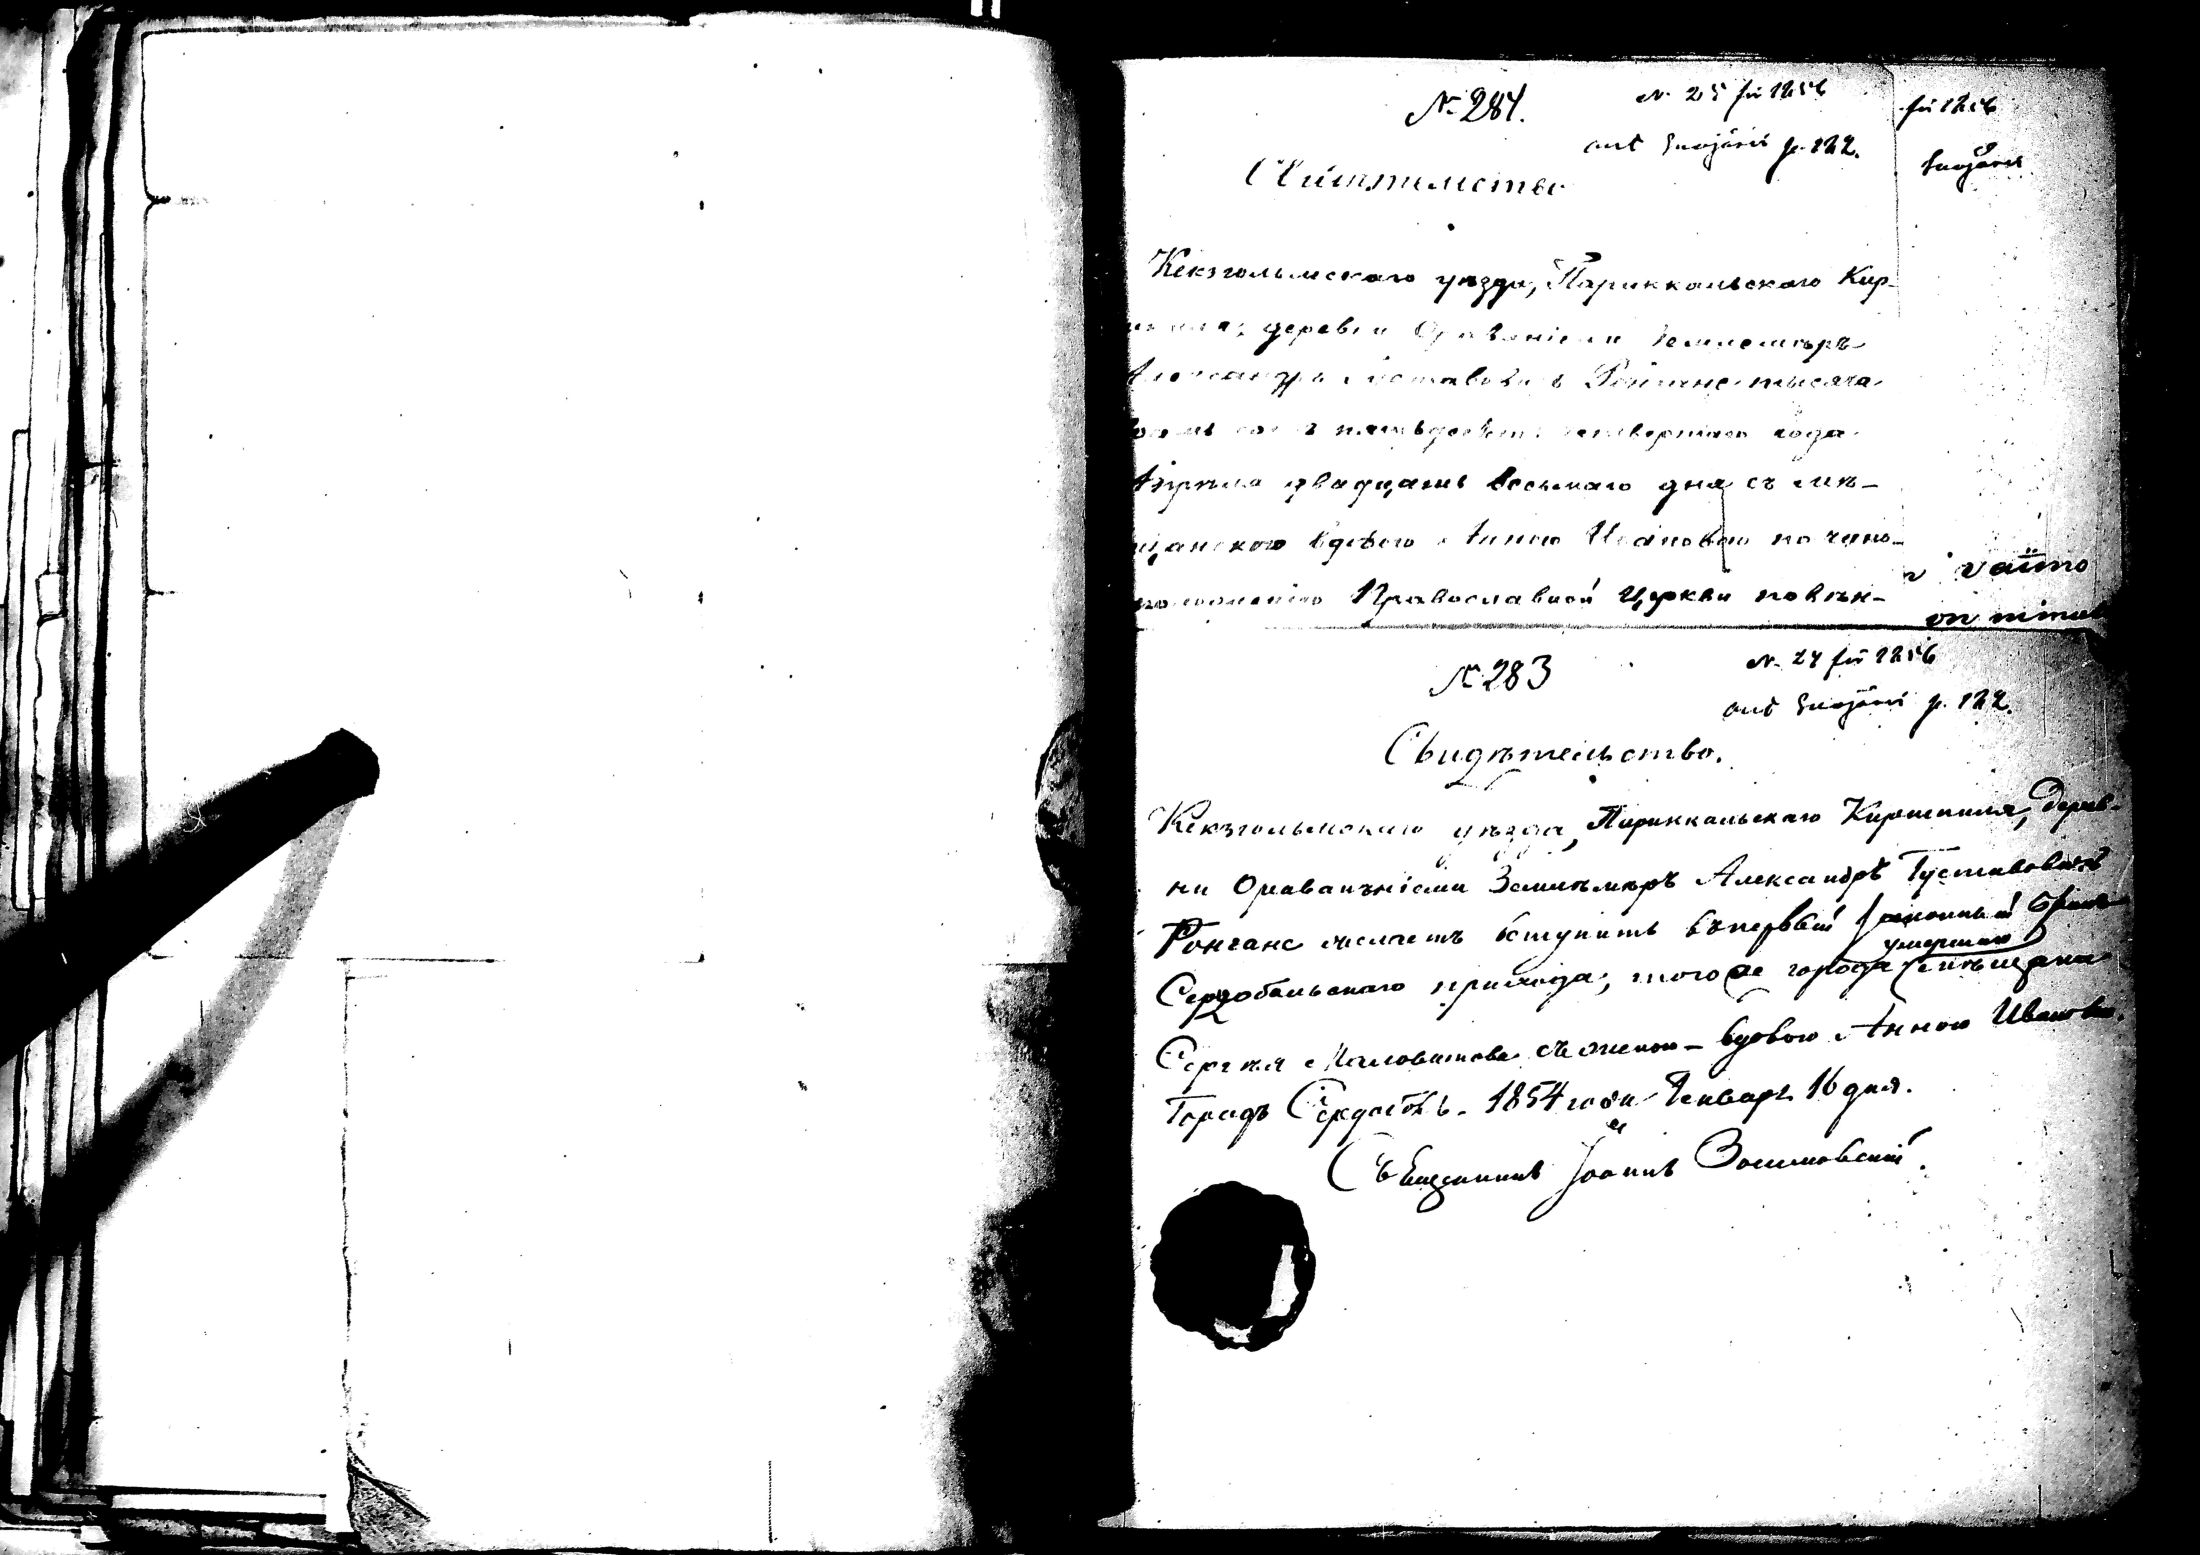 № 284.
N. 25 för 1856
ant Suojärvi p. 122.
Свидѣтельство
Кексгольмскаго уѣзда, Париккальскаго Кир-
деревни Землемѣръ
Александръ Густавовичъ Ронгане тысяча
восемь сотъ пятьдесятъ четвертаго года
Апрѣля двадцать восьмаго дня съ мѣ-
щанскою вдовою Анною Ивановою по чино-
положенію Православной Церкви повѣн-
för 1856
Suojärvi
№ 283
N. 24 för 1856
ant Suojärvi p. 122.
Свидѣтельство.
Кексгольмскаго уѣзда, Париккальскаго Киршпиля, Дерев-
ни Ораванъніеми Землемѣръ Александръ Густавовичъ
Ронгане желаетъ вступить въ первый законный бракъ
умершаго
Сердобольскаго прихода, того же города мѣщанина
Сергѣя съ женою - вдовою Анною Ивановою.
Городъ Сердоболь. 1854 года Январь 16 дня.
Священникъ Іоаннъ Зосимовскій.